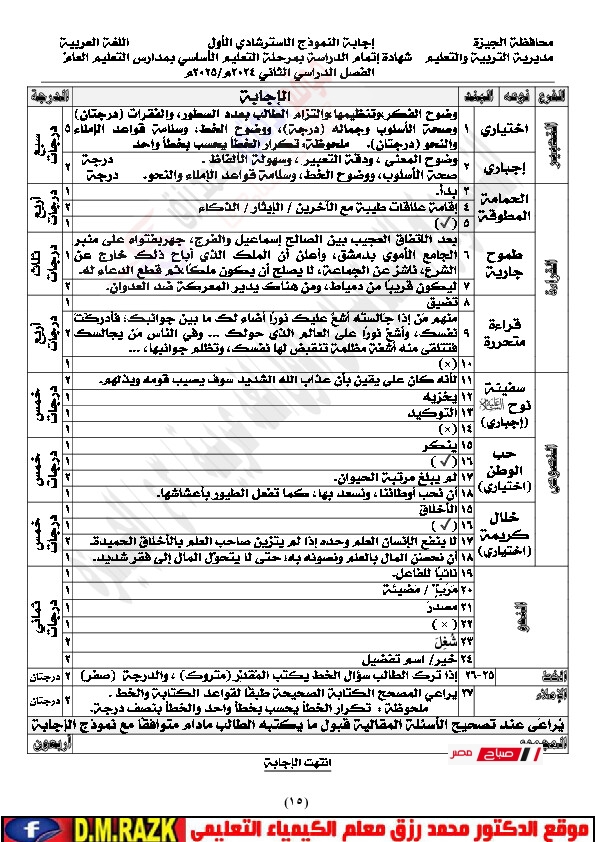 محافظة الجيزة
إجابة النموذج الاسترشادي الأول
اللغة العربية
مديرية التربية والتعليم
شهادة إتمام الدراسة بمرحلة التعليم الأساسي بمدارس التعليم العام
الفصل الدراسي الثاني ٢٠٢٤م/٢٠٢٥م
الفرع نوعه البند الإجابة الدرجة
التعبير
اختياري ١ وضوح الفكر،وتنظيمها،والتزام الطالب بعدد السطور، والفقرات (درجتان)
وصحة الأسلوب وجماله (درجة)، ووضوح الخط، وسلامة قواعد الإملاء
والنحو (درجتان). ملحوظة: تكرار الخطأ يحسب بخطأ واحد ٥
سبع درجات
إجباري ٢ وضوح المعنى ، ودقة التعبير ، وسهولة الألفاظ . درجة
صحة الأسلوب، ووضوح الخط، وسلامة قواعد الإملاء والنحو. درجة ٢
القراءة
الحمامة المطوقة
٣ بدأ. ١
٤ إقامة علاقات طيبة مع الآخرين / الإيثار / الذكاء ٢
٥ (✓) ١
أربع درجات
طموح جارية
٦ بعد الاتفاق العجيب بين الصالح إسماعيل والفرنج، جهربفتواه على منبر
الجامع الأموي بدمشق، وأعلن أن الملك الذي أباح ذلك خارج عن
الشرع، ناشز عن الجماعة، لا يصلح أن يكون ملكًا،ثم قطع الدعاء له. ٢
٧ ليكون قريبًا من دمياط، ومن هناك يدير المعركة ضد العدوان. ١
ثلاث درجات
قراءة متحررة
٨ تضيق ١
٩ منهم مَن إذا جالسته أشعّ عليك نورًا أضاء لك ما بين جوانبك: فأدركتَ
نفسك، وأشعّ نورًا على العالم الذي حولك ... وفي الناس مَن يجالسك
فتتلقى منه أشعة مظلمة تنقبض لها نفسك، وتظلم جوانبها، ... ٢
١٠ (×) ١
أربع درجات
النصوص
سفينة نوح (إجباري)
١١ لأنه كان على يقين بأن عذاب الله الشديد سوف يصيب قومه ويذلهم. ٢
١٢ يخزيه ١
١٣ التوكيد ١
١٤ (×) ١
خمس درجات
حب الوطن (اختياري)
١٥ ينكر ١
١٦ (✓) ١
١٧ لم يبلغ مرتبة الحيوان. ٢
١٨ أن نحب أوطاننا، ونسعد بها، كما تفعل الطيور بأعشاشها. ١
خمس درجات
خلال كريمة (اختياري)
١٥ الأخلاق ١
١٦ (✓) ١
١٧ لا ينفع الإنسان العلم وحده إذا لم يتزين صاحب العلم بالأخلاق الحميدة. ٢
١٨ أن نحصن المال بالعلم ونصونه به؛ حتى لا يتحوّل المال إلى فقر شديد. ١
خمس درجات
النحو
١٩ نائبًا للفاعل. ١
٢٠ مَرَيَّا / مضيئة ١
٢١ مصدرَ ١
٢٢ (×) ١
٢٣ شُغِلَ ٢
٢٤ خبر/ اسم تفضيل ٢
ثماني درجات
الخط ٢٥-٢٦ إذا ترك الطالب سؤال الخط يكتب المقدِّر (متروك) ، والدرجة (صفر) ٢ درجتان
الإملاء ٢٧ يراعي المصحح الكتابة الصحيحة طبقًا لقواعد الكتابة والخط .
ملحوظة : تكرار الخطأ يحسب بخطأ واحد والخطأ بنصف درجة. ٢ درجتان
يُراعى عند تصحيح الأسئلة المقالية قبول ما يكتبه الطالب مادام متوافقًا مع نموذج الإجابة
المجموع أربعون
صباح مصر
انتهت الإجابة
(١٥)
موقع الدكتور محمد رزق معلم الكيمياء التعليمى D.M.RAZK f